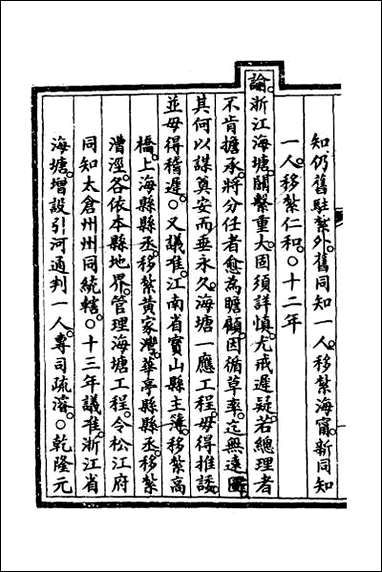 知仍舊駐紮外舊同知一人移紮海甯新同知
一人移紮仁和○十二年
論浙江海塘關繫重大固須詳慎尤戒遲疑若總理者
不肯擔承將分任者愈為瞻顧因循草率迄無遠圖
其何以謀奠安而垂永久海塘一應工程毋得推諉
並毋得稽遲○又議准江南省寶山縣主簿移紮高
橋上海縣縣丞移紮黃家灣華亭縣縣丞移紮
漕涇各依本縣地界管理海塘工程令松江府
同知太倉州州同統轄○十三年議准浙江省
海塘增設引河通判一人專司疏濬○乾隆元